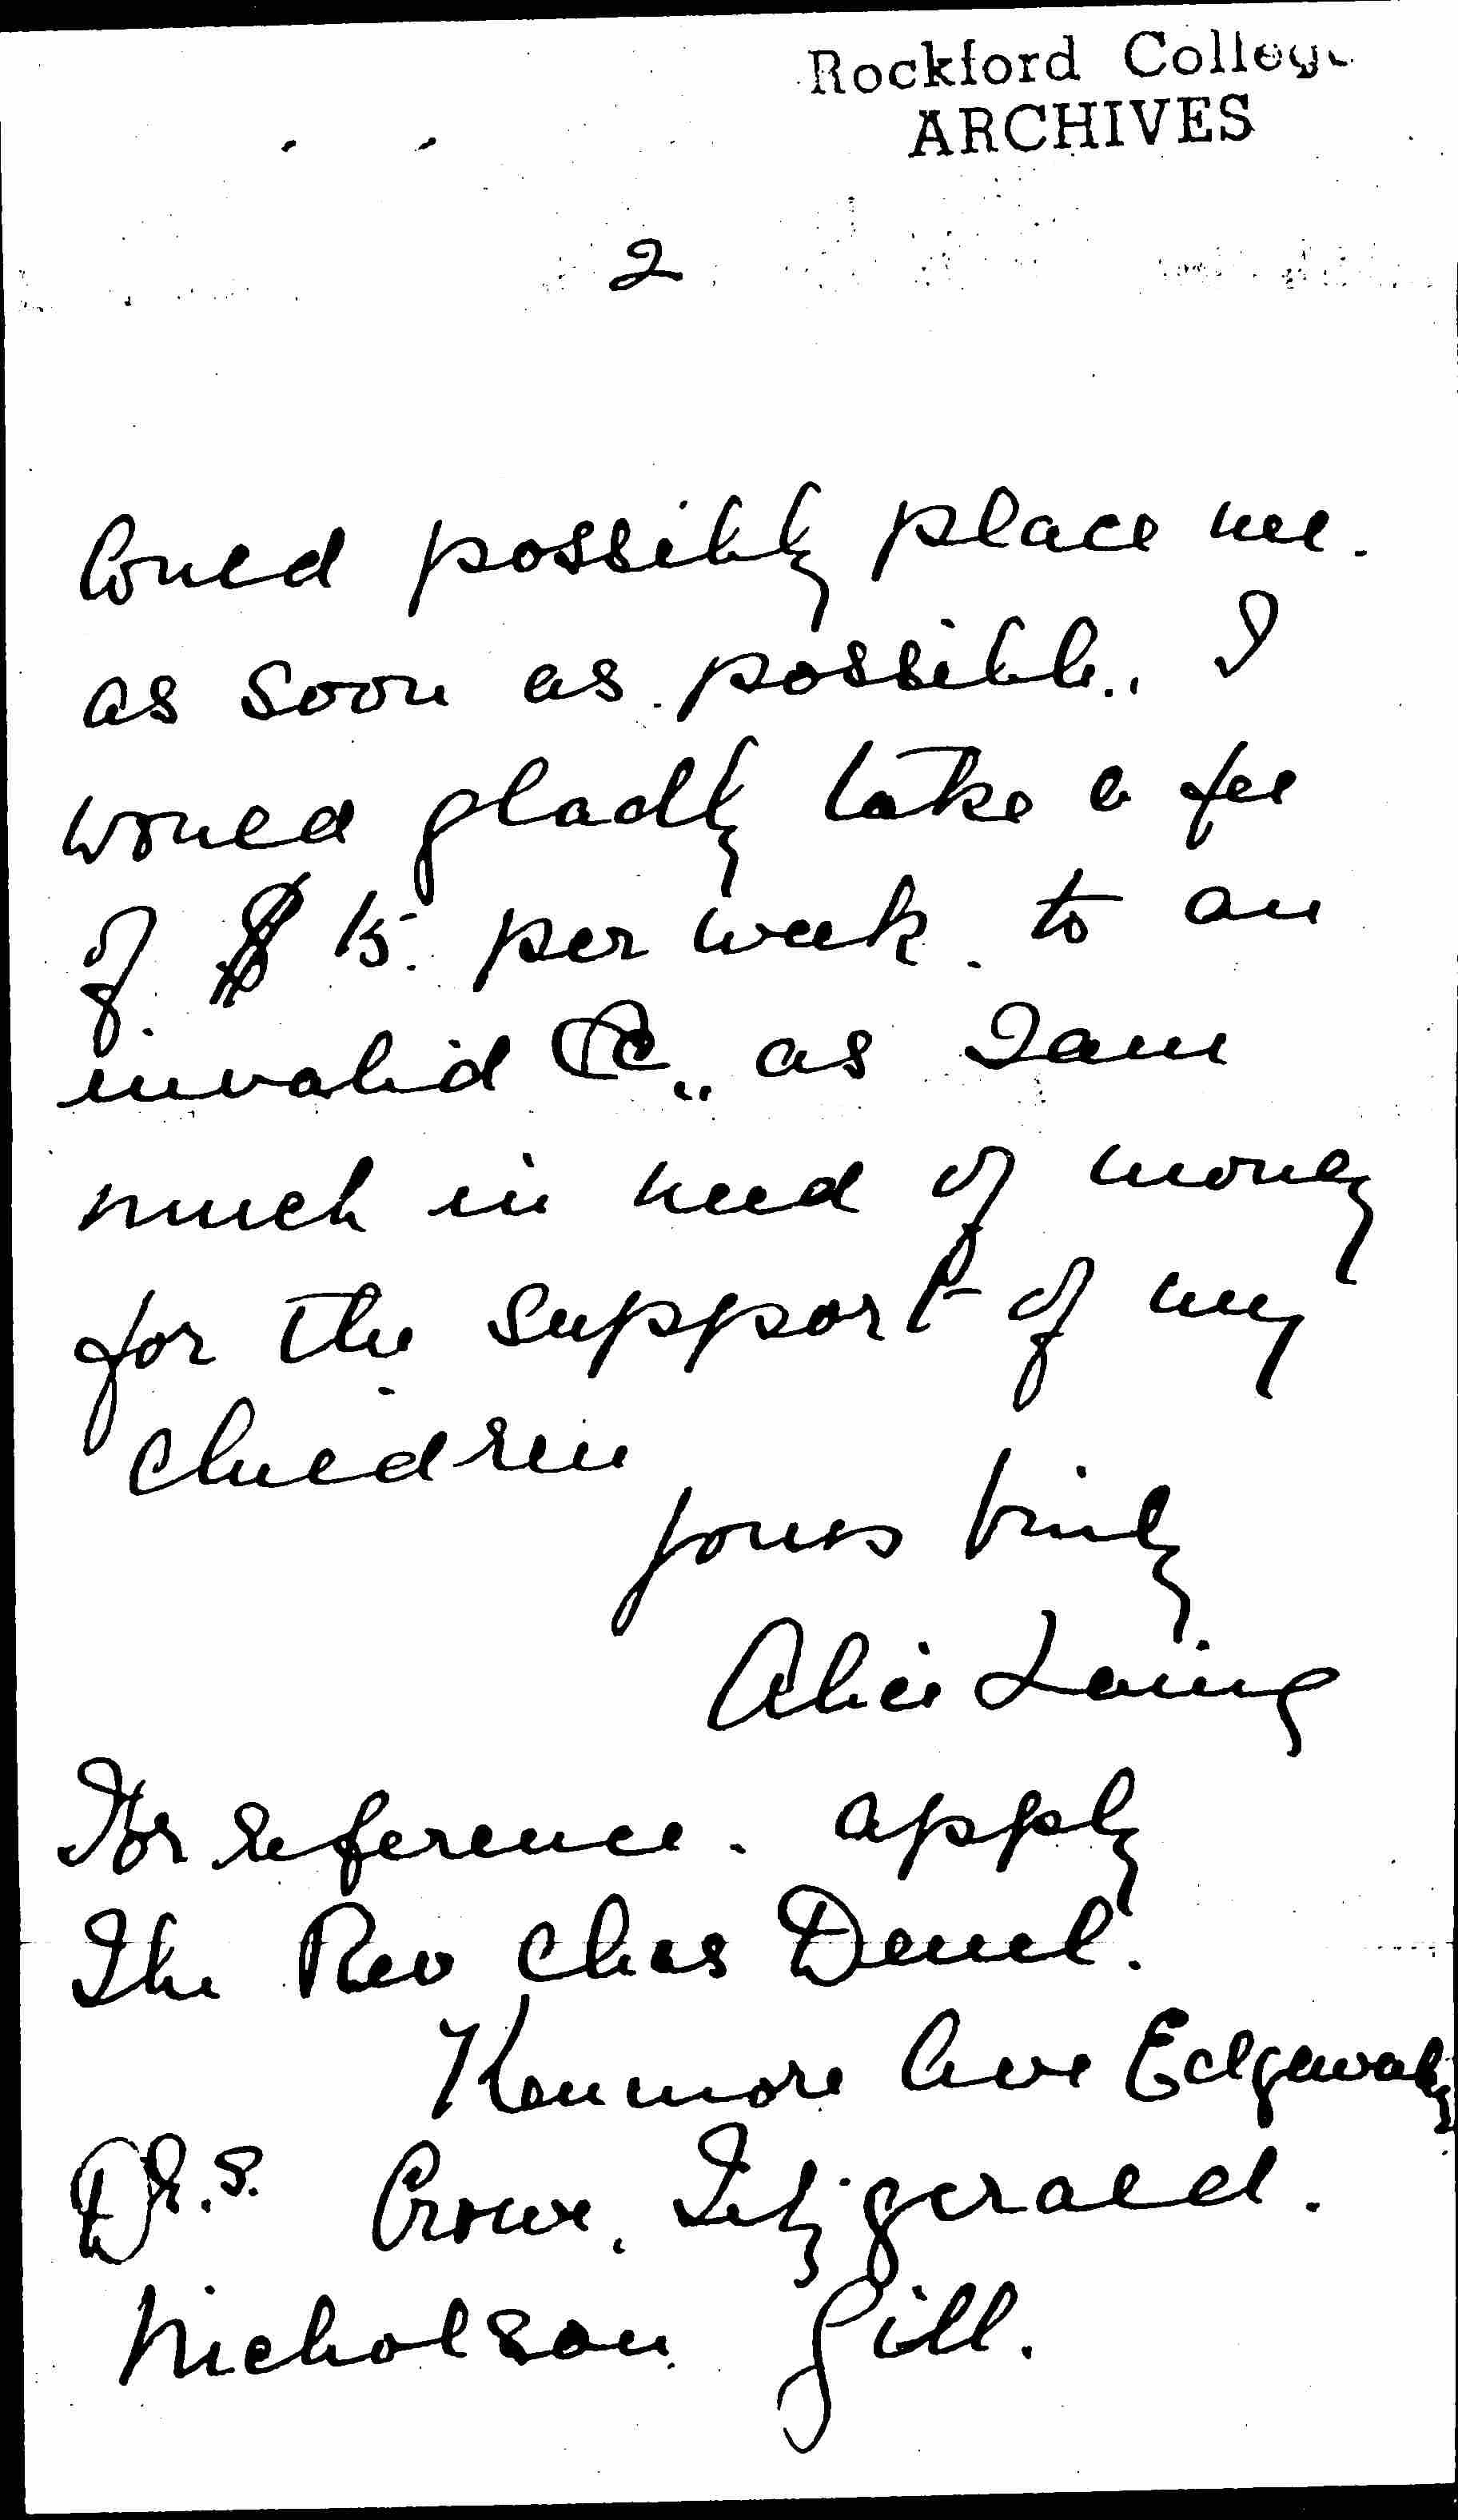 Rockford College
ARCHIVES
2
Could possibly place me.
as soon as possible.. I
would gladly take a fee
of $ 15. per week. to an
invalid &c,, as I am
much in need of money
for the support of my
children
yours truly
Alice Laing
For reference. apply
The Rev Chas Deuel.
Kenmore Ave Edgewater
Drs. Crowe. Fitzgerald.
Nicholson Gill.